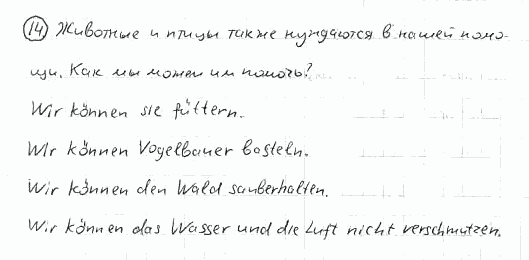 14 Животные и птицы также нуждаются в нашей помо-
щи. Как мы можем им помочь?
Wir können sie füttern.
Wir können Vogelbauer basteln.
Wir können den Wald sauberhalten.
Wir können das Wasser und die Luft nicht verschmutzen.